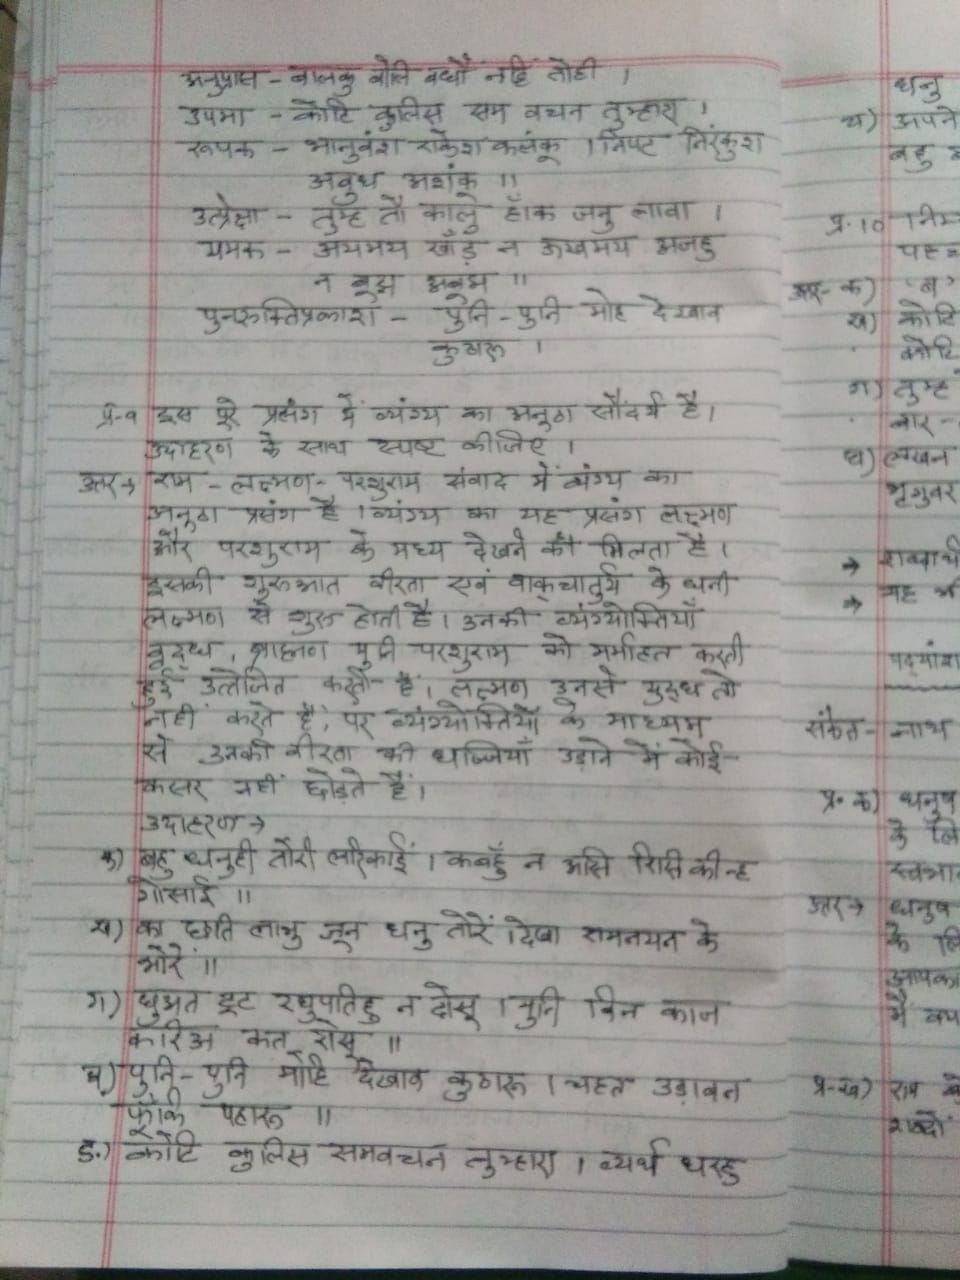 अनुप्रास - बालकु बोलि बधौं नहिं तोही ।
उपमा - कोटि कुलिस सम वचन तुम्हारा ।
रूपक - भानुवंश राकेश कलंकू । निपट निरंकुश
अबुध अशंकू ॥
उत्प्रेक्षा - तुम्ह तौ कालु हाँक जनु लावा ।
यमक - अयमय खाँड़ न ऊखमय अजहु
न बूझ अबूझ ॥
पुनरुक्तिप्रकाश - पुनि-पुनि मोह देखाव
कुठारू ।
प्र-9 इस पूरे प्रसंग में व्यंग्य का अनूठा सौंदर्य है।
उदाहरण के साथ स्पष्ट कीजिए ।
उत्तर→ राम - लक्ष्मण - परशुराम संवाद में व्यंग्य का
अनूठा प्रसंग है । व्यंग्य का यह प्रसंग लक्ष्मण
और परशुराम के मध्य देखने को मिलता है।
इसकी शुरुआत वीरता एवं वाक्चातुर्य के धनी
लक्ष्मण से शुरू होती है। उनकी व्यंग्योक्तियाँ
वृद्ध, ब्राह्मण मुनि परशुराम को मर्माहत करती
हुई उत्तेजित करती हैं। लक्ष्मण उनसे युद्ध तो
नहीं करते हैं, पर व्यंग्योक्तियों के माध्यम
से उनकी वीरता की धज्जियाँ उड़ाने में कोई-
कसर नहीं छोड़ते हैं।
उदाहरण→
क) बहु धनुही तोरी लरिकाईं । कबहुँ न असि रिसि कीन्ह
गोसाईं ॥
ख) का छति लाभु जून धनु तोरें । देखा रामनयन के
भोरें ॥
ग) छुअत टूट रघुपतिहु न दोसू । मुनि बिन काज
करिअ कत रोसू ॥
घ) पुनि-पुनि मोहि देखाव कुठारू । चहत उड़ावन
फूँकि पहारू ॥
ङ.) कोटि कुलिस समवचन तुम्हारा । व्यर्थ धरहु
धनु
घ) अपने
बहु
प्र.10
क)
ख) कोटि
कोटि
ग) तुम्ह
बार-
घ) लखन
भृगुवर
→ शब्दार्थ
→ यह
पद्यांश
संकेत - नाथ
प्र. क) धनुष
के
उत्तर→ धनुष
के
आपका
में
प्र-ख) राम
शब्दों